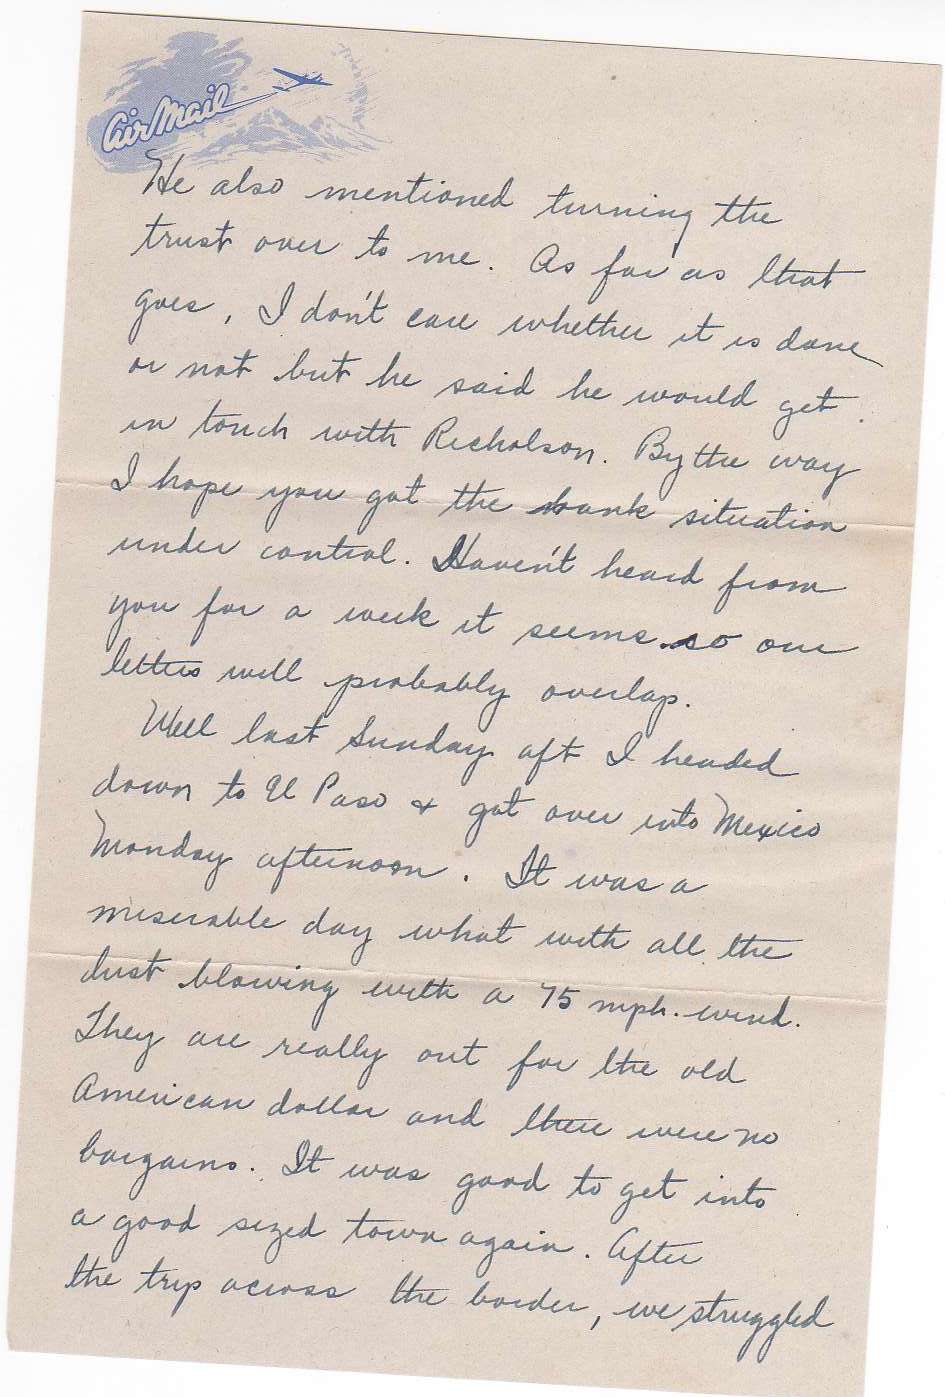 Air Mail
He also mentioned turning the
trust over to me. As far as that
goes, I don't care whether it is done
or not but he said he would get
in touch with Richolson. By the way
I hope you got the bank situation
under control. Haven't heard from
you for a week it seems so our
letters will probably overlap.
Well last Sunday aft I headed
down to El Paso & got over into Mexico
Monday afternoon. It was a
miserable day what with all the
dust blowing with a 75 mph. wind.
They are really out for the old
American dollar and there were no
bargains. It was good to get into
a good sized town again. After
the trip across the border, we struggled